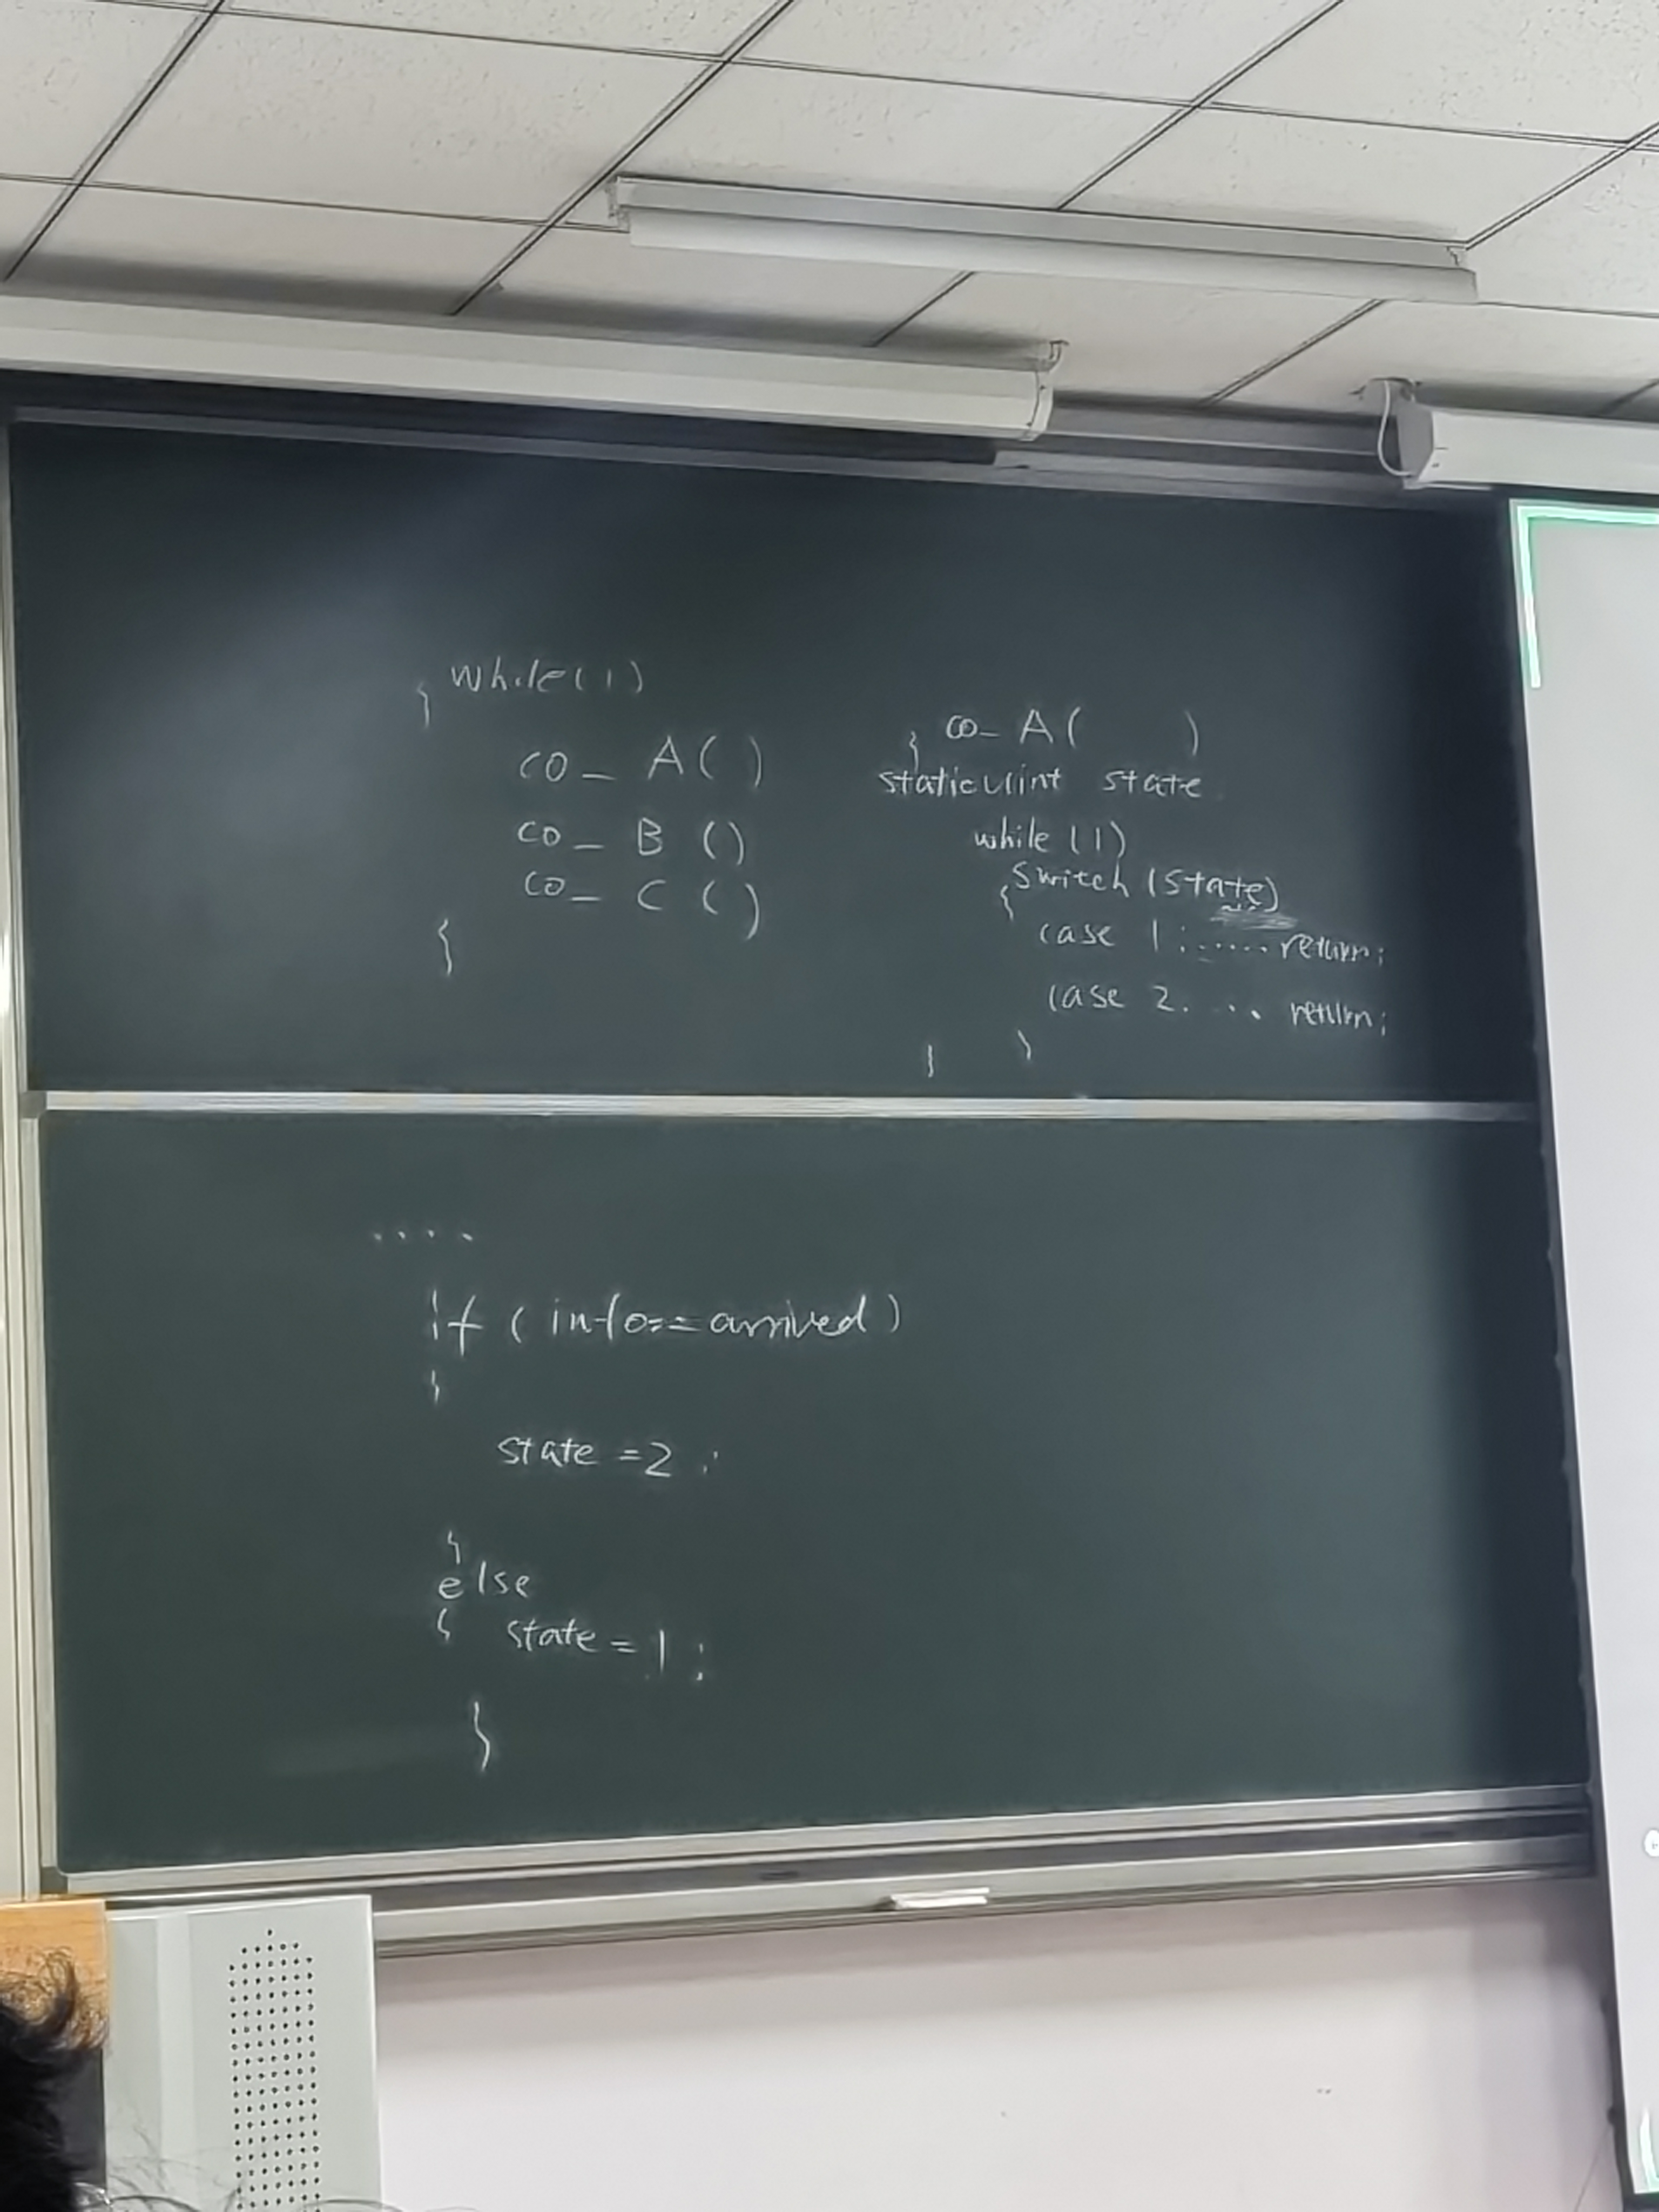 while(1)
{
co_ A( )
co_ B ()
co_ C ( )
}
co_ A( )
{
static uint state
while (1)
switch (state)
{
case 1: ...... return;
case 2. .... return;
}
}
....
if (info == arrived)
{
state = 2 ;
}
else
{ state = 1 ;
}